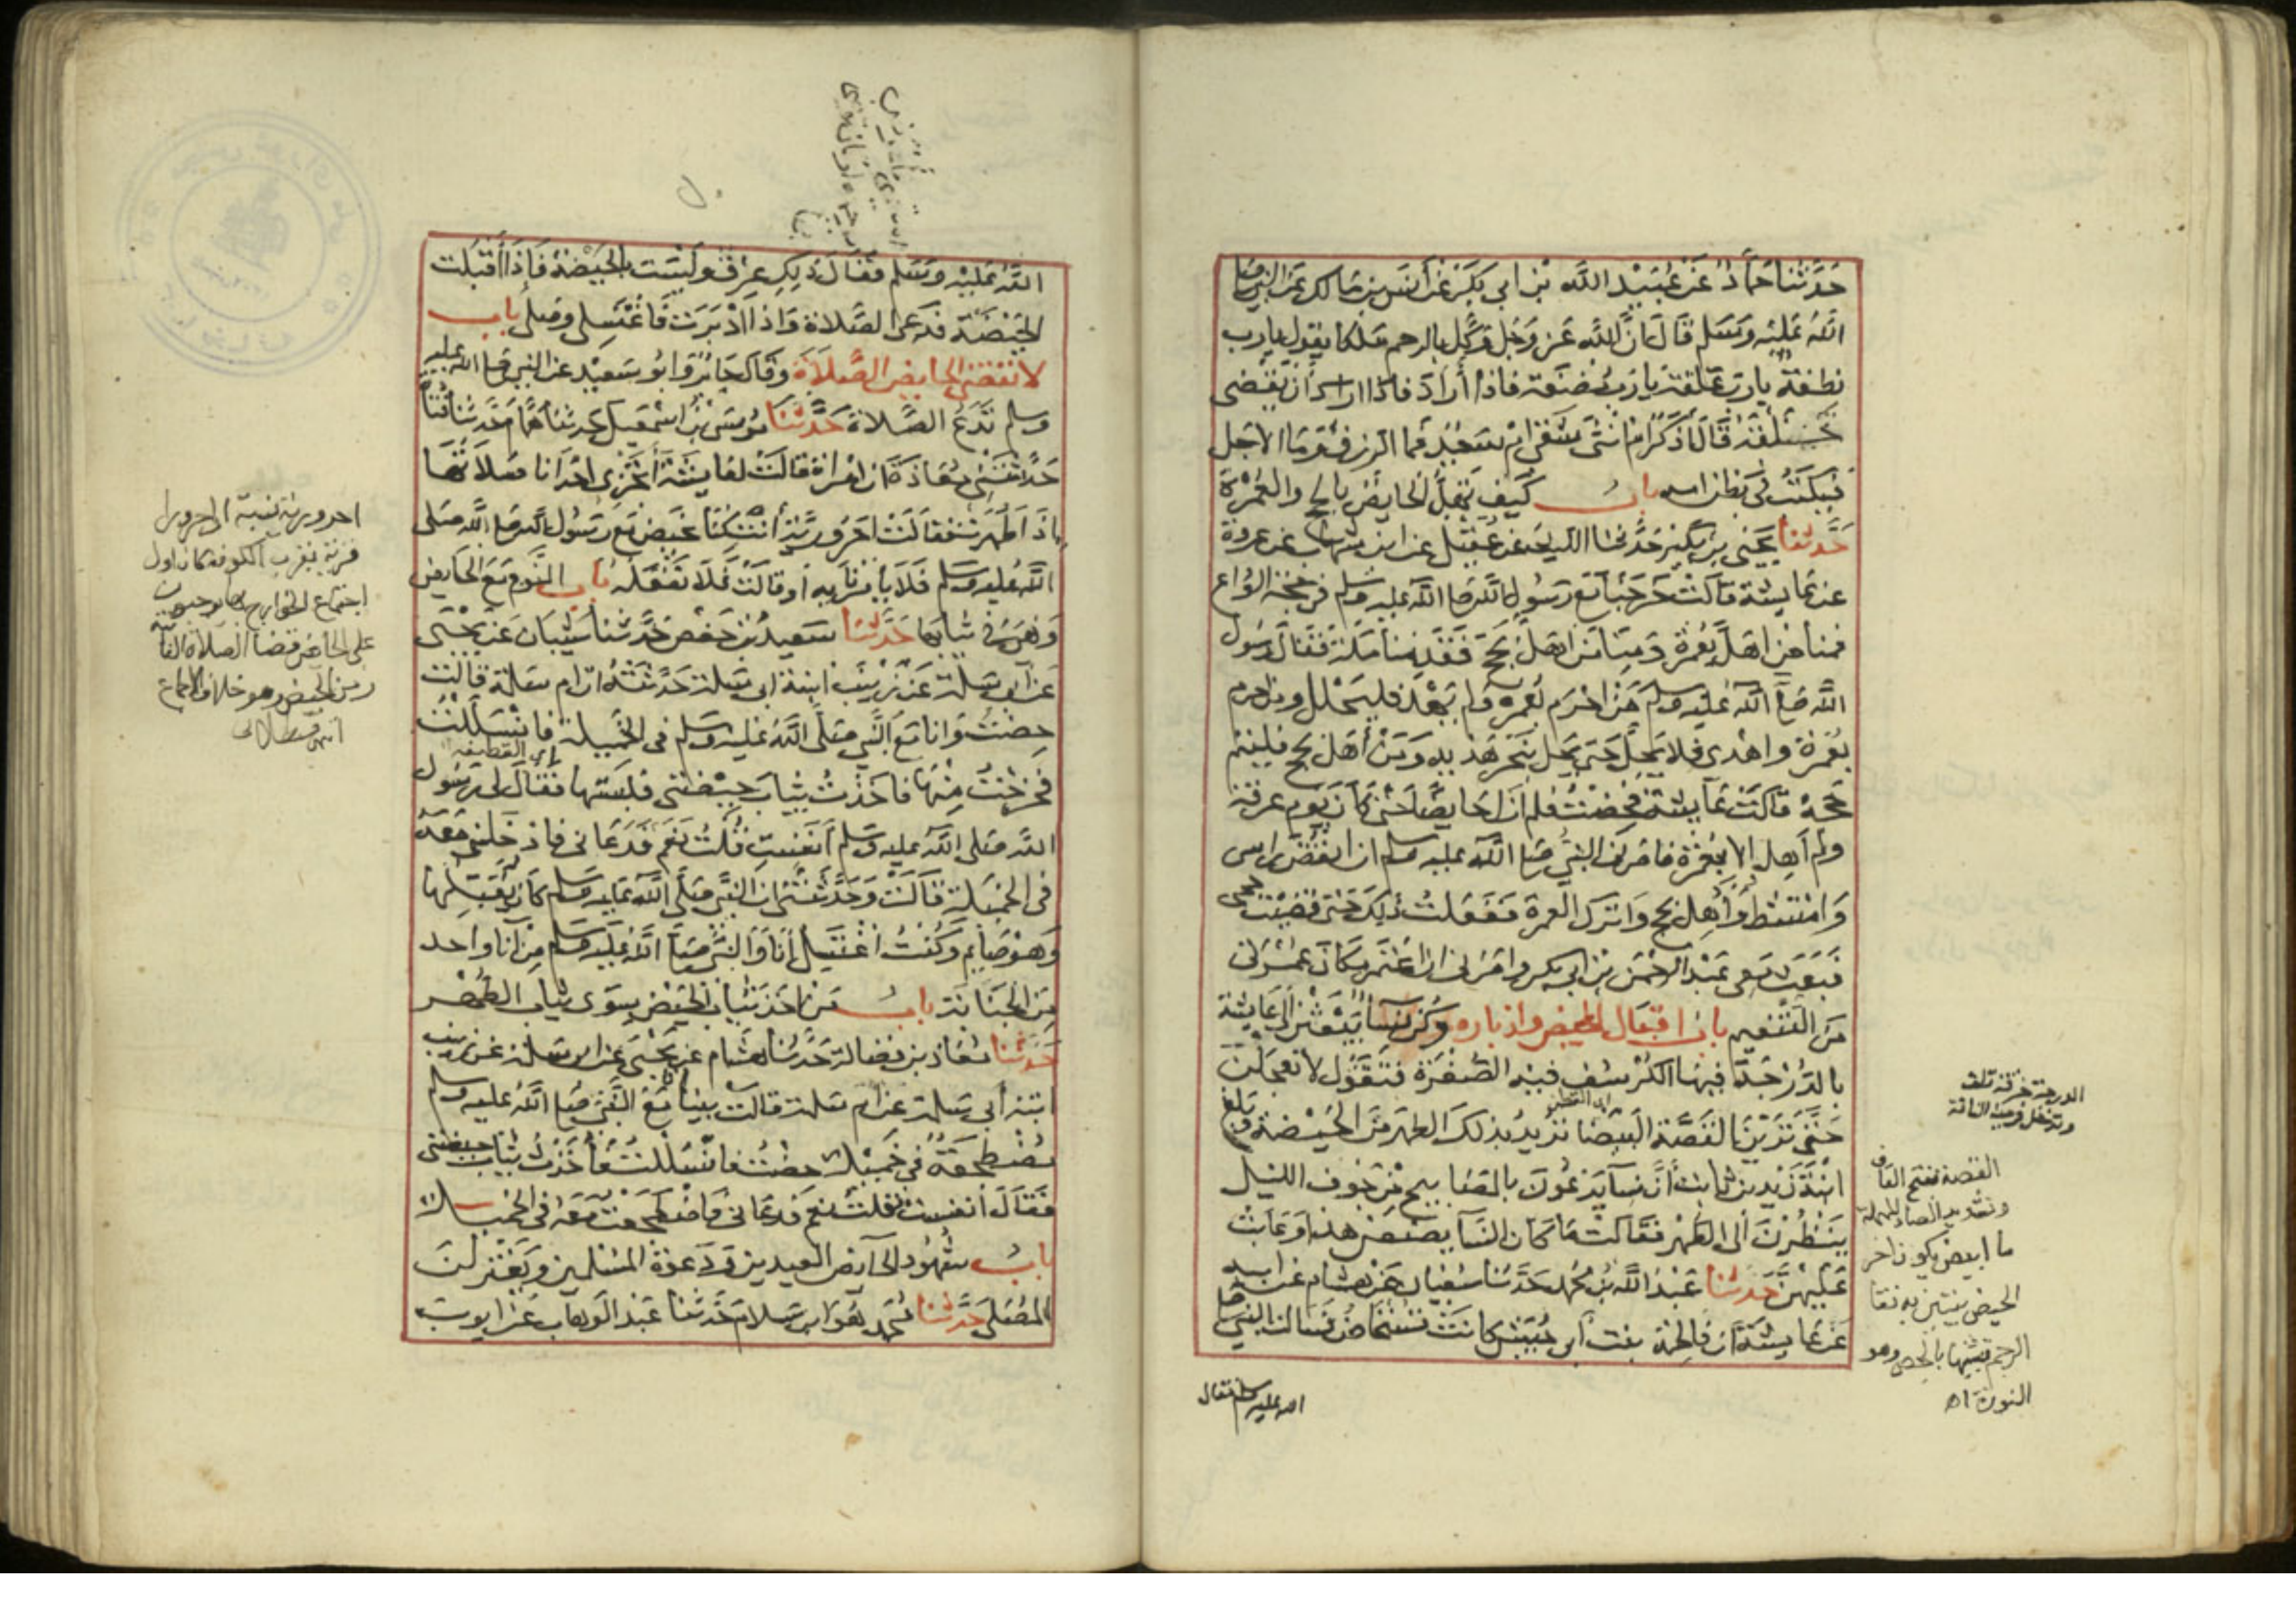 حدثنا حماد عن عبيد الله بن ابي بكر عن أنس بن مالك عن النبي صلى
الله عليه وسلم قال ان الله عز وجل وكل بالرحم ملكا يقول يارب
نطفة يارب علقة يارب مضغة فاذا أراد فاذا اراد أن يقضي
خلقه قال أذكر ام انثى شقي ام سعيد فما الرزق وما الاجل
فيكتب في بطن امه باب كيف تهل الحايض بالحج والعمرة
حدثنا يحيى بن بكير حدثنا الليث عن عقيل عن ابن شهاب عن عروة
عن عايشة قالت خرجنا مع رسول الله صلى الله عليه وسلم في حجة الوداع
فمنا من اهل بعمرة ومنا من اهل بحج فقدمنا مكة فقال رسول
الله صلى الله عليه وسلم من احرم بعمرة ولم يهد فليحلل ومن احرم
بعمرة واهدى فلا يحل حتى يحل بنحر هديه ومن أهل بحج فليتم
حجه قالت عايشة فحضت فلم ازل حايضا حتى كان يوم عرفة
ولم أهل الا بعمرة فامرني النبي صلى الله عليه وسلم ان انقض راسي
وامتشط وأهل بحج واترك العمرة ففعلت ذلك حتى قضيت حجي
فبعث معي عبد الرحمن بن ابي بكر وامرني ان اعتمر مكان عمرتي
من التنعيم باب اقبال المحيض وادباره وكن نسآ يبعثن إلى عايشة
بالدرجة فيها الكرسف فيه الصفرة فتقول لا تعجلن
اي القطن
حتى ترين القصة البيضا تريد بذلك الطهر من الحيضة وبلغ
ابنة زيد بن ثابت أن نسآ يدعون بالمصابيح من جوف الليل
ينظرن الى الطهر فقالت ما كان النسآ يصنعن هذا وعابت
عليهن حدثنا عبد الله بن محمد حدثنا سفيان عن هشام عن ابيه
عن عايشة أن فاطمة بنت أبي حبيش كانت تستحاض فسالت النبي صلى
الله عليه وسلم فقال
الدرجة خرقة تلف
القصة بفتح القاف
وتشديد الصاد المهملة
ما ابيض يكون اخر
الحيض يتبين به نقا
الرحم تشبيها بالجص وهو
النورة اه
الله عليه وسلم فقال ذلك عرق وليست بالحيضة فإذا أقبلت
الحيضة فدعي الصلاة واذا أدبرت فاغتسلي وصلي باب
لا تقضي الحايض الصلاة وقال جابر وابو سعيد عن النبي صلى الله عليه
وسلم تدع الصلاة حدثنا موسى بن اسمعيل حدثنا همام حدثنا قتا
حدثتني معاذة ان امراة قالت لعايشة أتجزي احدانا صلاتها
اذا طهرت فقالت احرورية أنت كنا نحيض مع رسول الله صلى الله صلى
الله عليه وسلم فلا يأمرنا به أو قالت فلا نفعله باب النوم مع الحايض
وهي في ثيابها حدثنا سعيد بن حفص حدثنا شيبان عن يحيى
عن أبي سلمة عن زينب ابنة ابي سلمة حدثته ان ام سلمة قالت
حضت وانا مع النبي صلى الله عليه وسلم في الخميلة فانسللت
اي القطيفة
فخرجت منها فاخذت ثياب حيضتي فلبستها فقال لي رسول
الله صلى الله عليه وسلم أنفست قلت نعم فدعاني فادخلني معه
في الخميلة قالت وحدثتني ان النبي صلى الله عليه وسلم كان يقبلها
وهو صايم وكنت اغتسل أنا والنبي صلى الله عليه وسلم من انا واحد
من الجنابة باب من اخذ ثياب الحيض سوى ثياب الطهر
حدثنا معاذ بن فضالة حدثنا هشام عن يحيى عن ابي سلمة عن زينب
ابنة أبي سلمة عن ام سلمة قالت بينا أنا مع النبي صلى الله عليه وسلم
مضطجعة في خميلة حضت فانسللت فأخذت ثياب حيضتي
فقال أنفست فقلت نعم فدعاني فاضطجعت معه في الخميلة
باب شهود الحايض العيدين ودعوة المسلمين ويعتزلن
المصلى حدثنا محمد هو ابن سلام حدثنا عبد الوهاب عن ايوب
احرورية نسبة الى حرورا
قرية بقرب الكوفة كان اول
اجتماع الخوارج بها يوجبون
على الحايض قضا الصلاة الفائتة
زمن الحيض وهو خلاف الاجماع